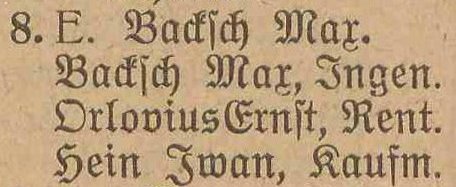 8. E. Backſch Max.
Backſch Max, Ingen.
Orlovius Ernſt, Rent.
Hein Iwan, Kaufm.